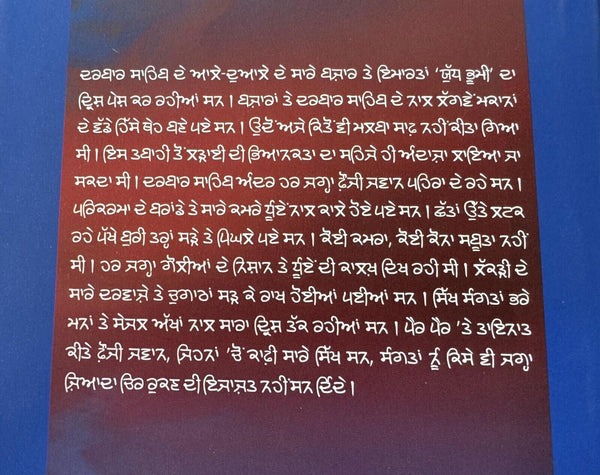 ਦਰਬਾਰ ਸਾਹਿਬ ਦੇ ਆਲੇ-ਦੁਆਲੇ ਦੇ ਸਾਰੇ ਬਜ਼ਾਰ ਤੇ ਇਮਾਰਤਾਂ 'ਯੁੱਧ ਭੂਮੀ' ਦਾ
ਦ੍ਰਿਸ਼ ਪੇਸ਼ ਕਰ ਰਹੀਆਂ ਸਨ। ਬਜ਼ਾਰਾਂ ਤੇ ਦਰਬਾਰ ਸਾਹਿਬ ਦੇ ਨਾਲ ਲੱਗਵੇਂ ਮਕਾਨਾਂ
ਦੇ ਵੱਡੇ ਹਿੱਸੇ ਥੇਹ ਬਣੇ ਪਏ ਸਨ। ਉਦੋਂ ਅਜੇ ਕਿਤੋਂ ਵੀ ਮਲਬਾ ਸਾਫ਼ ਨਹੀਂ ਕੀਤਾ ਗਿਆ
ਸੀ। ਇਸ ਤਬਾਹੀ ਤੋਂ ਲੜਾਈ ਦੀ ਭਿਆਨਕਤਾ ਦਾ ਸਹਿਜੇ ਹੀ ਅੰਦਾਜ਼ਾ ਲਾਇਆ ਜਾ
ਸਕਦਾ ਸੀ। ਦਰਬਾਰ ਸਾਹਿਬ ਅੰਦਰ ਹਰ ਜਗ੍ਹਾ ਫ਼ੌਜੀ ਜਵਾਨ ਪਹਿਰਾ ਦੇ ਰਹੇ ਸਨ।
ਪਰਿਕਰਮਾ ਦੇ ਬਰਾਂਡੇ ਤੇ ਸਾਰੇ ਕਮਰੇ ਧੂੰਏਂ ਨਾਲ ਕਾਲੇ ਹੋਏ ਪਏ ਸਨ। ਛੱਤਾਂ ਉੱਤੇ ਲਟਕ
ਰਹੇ ਪੱਖੇ ਬੁਰੀ ਤਰ੍ਹਾਂ ਸੜੇ ਤੇ ਪਿਘਲੇ ਪਏ ਸਨ। ਕੋਈ ਕਮਰਾ, ਕੋਈ ਕੋਨਾ ਸਬੂਤਾ ਨਹੀਂ
ਸੀ। ਹਰ ਜਗ੍ਹਾ ਗੋਲੀਆਂ ਦੇ ਨਿਸ਼ਾਨ ਤੇ ਧੂੰਏਂ ਦੀ ਕਾਲਖ਼ ਦਿਖ ਰਹੀ ਸੀ। ਲੱਕੜੀ ਦੇ
ਸਾਰੇ ਦਰਵਾਜ਼ੇ ਤੇ ਚੁਗਾਠਾਂ ਸੜ ਕੇ ਰਾਖ ਹੋਈਆਂ ਪਈਆਂ ਸਨ। ਸਿੱਖ ਸੰਗਤਾਂ ਭਰੇ
ਮਨਾਂ ਤੇ ਸੇਜਲ ਅੱਖਾਂ ਨਾਲ ਸਾਰਾ ਦ੍ਰਿਸ਼ ਤੱਕ ਰਹੀਆਂ ਸਨ। ਪੈਰ ਪੈਰ 'ਤੇ ਤਾਇਨਾਤ
ਕੀਤੇ ਫ਼ੌਜੀ ਜਵਾਨ, ਜਿਹਨਾਂ 'ਚੋਂ ਕਾਫ਼ੀ ਸਾਰੇ ਸਿੱਖ ਸਨ, ਸੰਗਤਾਂ ਨੂੰ ਕਿਸੇ ਵੀ ਜਗ੍ਹਾ
ਜ਼ਿਆਦਾ ਚਿਰ ਰੁਕਣ ਦੀ ਇਜਾਜ਼ਤ ਨਹੀਂ ਸਨ ਦਿੰਦੇ।